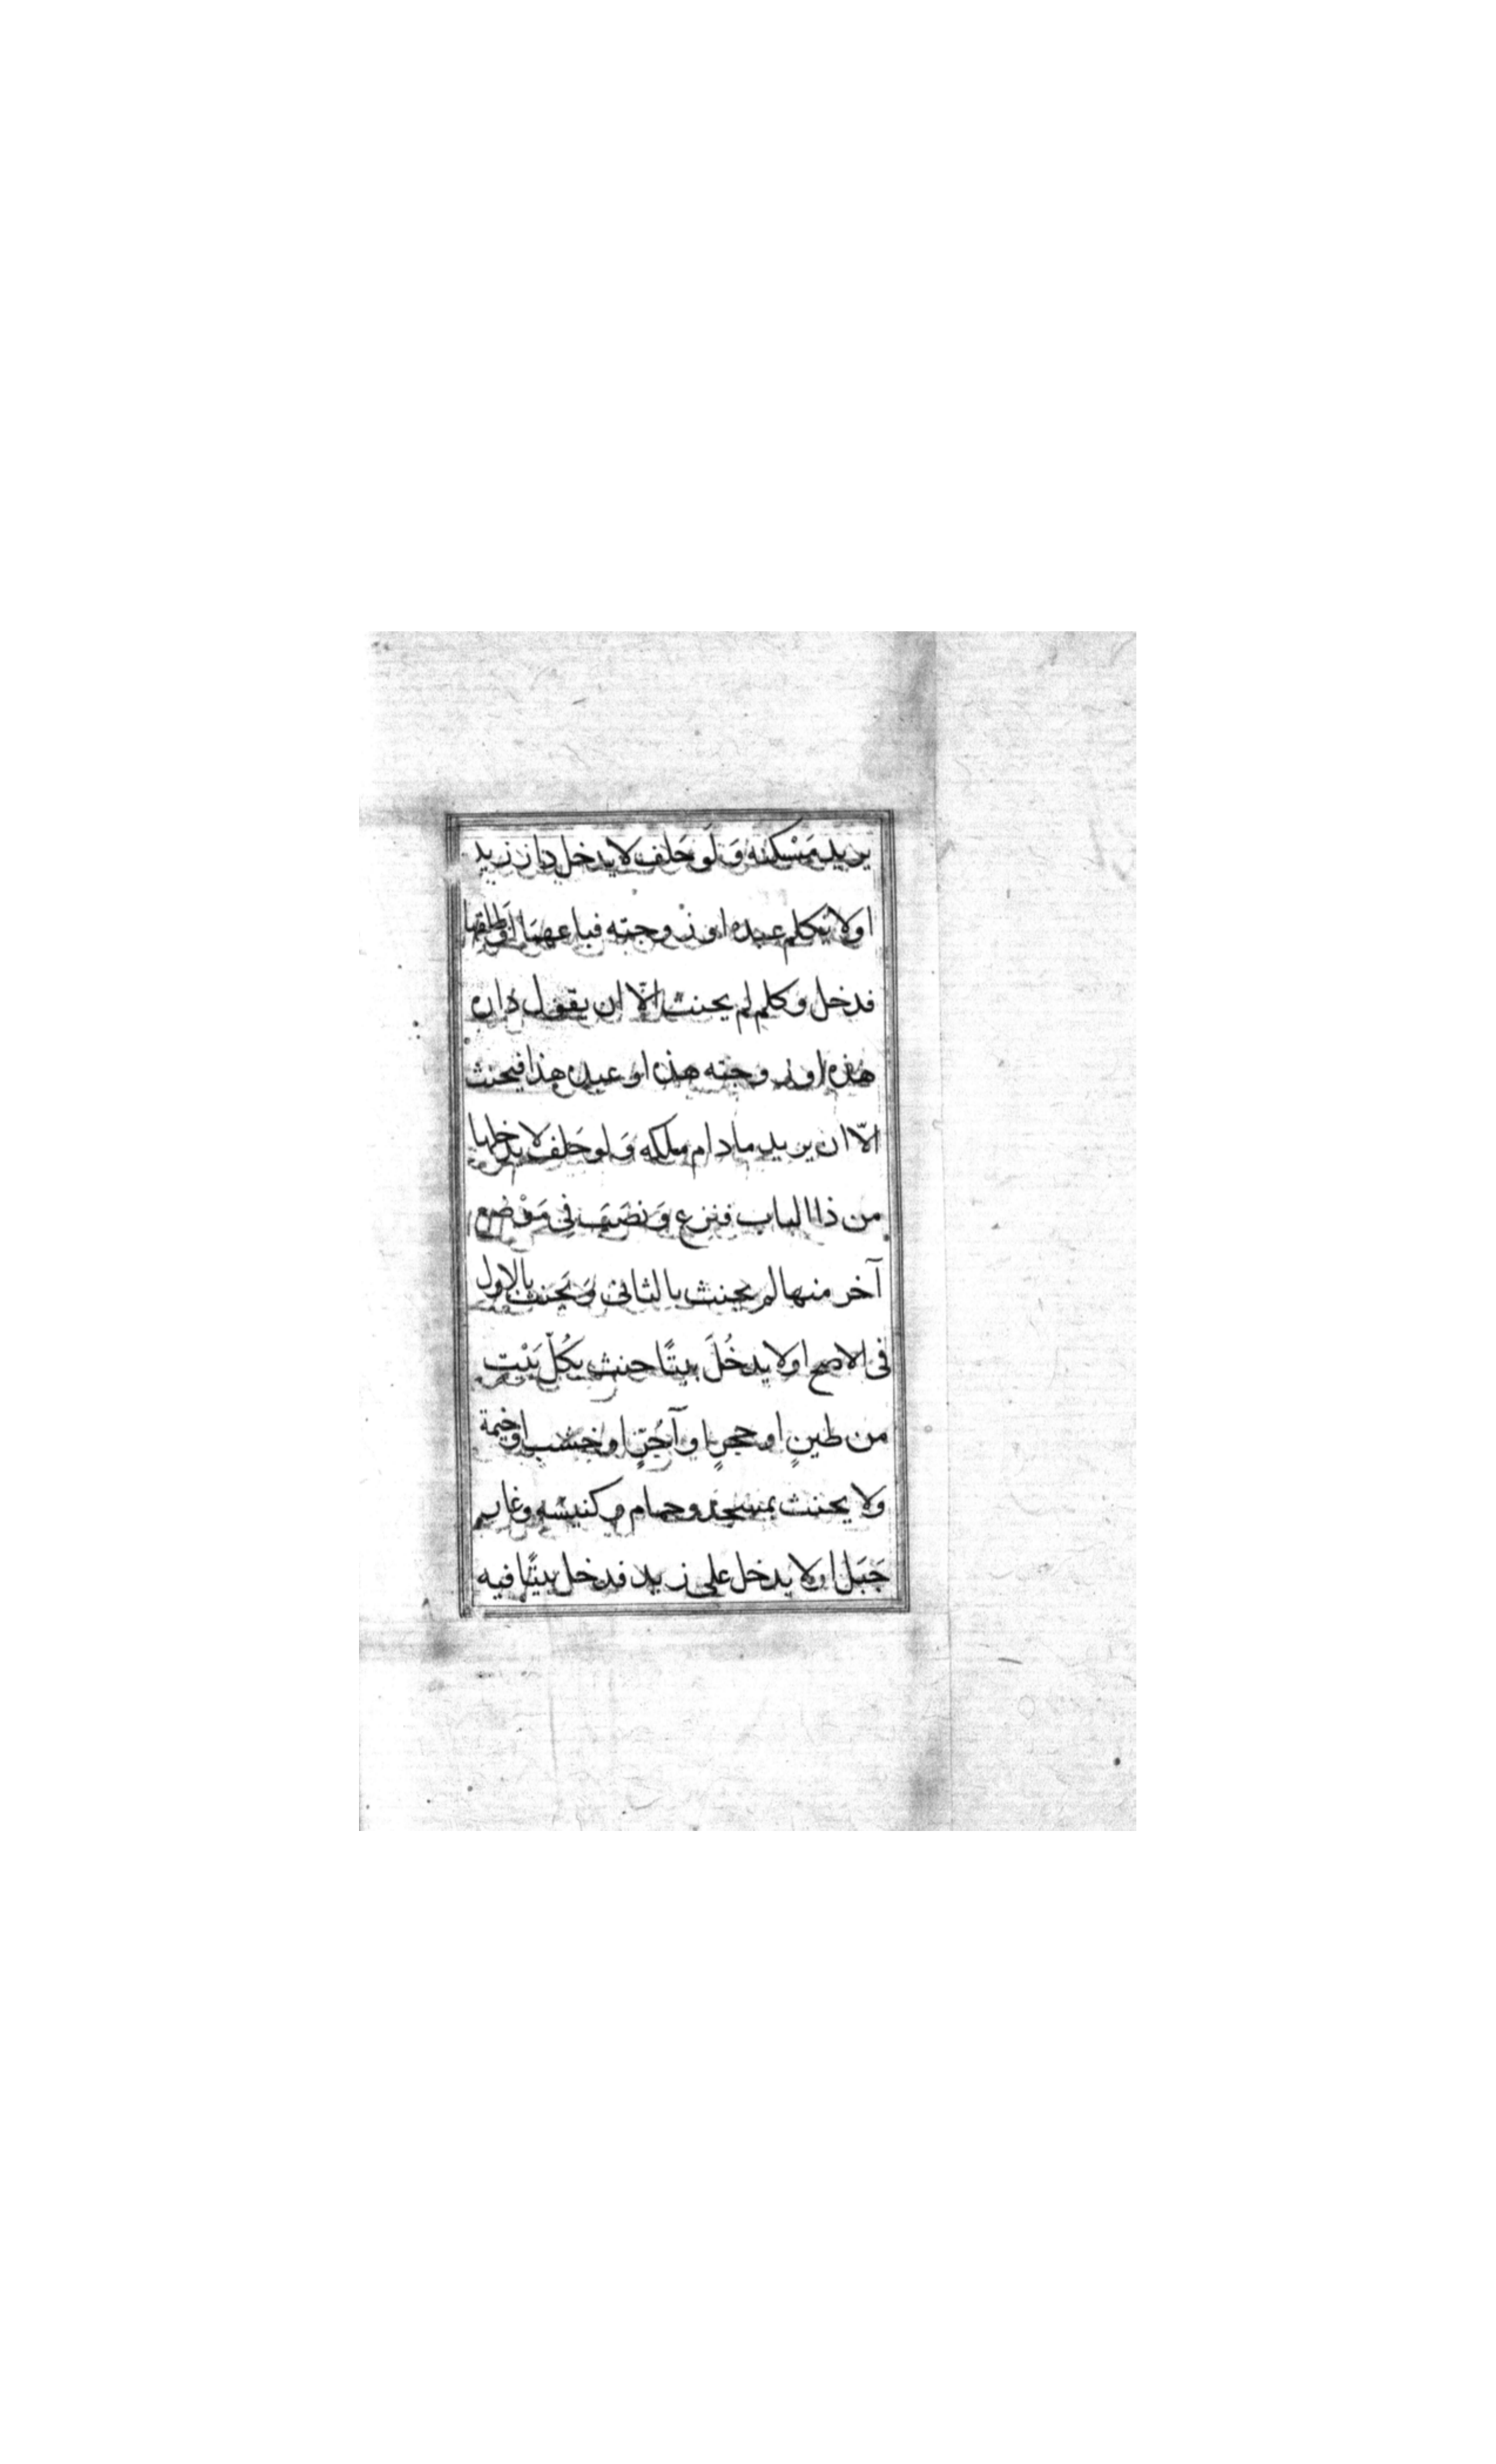 يريد مَسْكنه وَلَو حَلف لا يدخل دار زيد
او لا يكلم عبده او زوجته فباعهما او طلقها
فدخل وكلم لم يحنث الّا ان يقول داره
هذه او زوجته هذه او عبده هذا فيحنث
الّا ان يريد ما دام ملكه وَلو حَلف لا يدخلها
من ذا الباب فنزع وَنصَبَ فِي مَوْضع
آخر منها لم يحنث بالثانى وَيَحنث بالاول
فى الاصح او لا يدخُلَ بيتًا حنث بكُلّ بَيْتٍ
من طينٍ او حجرٍ او آجُرٍّ او خشب او خيمة
وَلا يحنث بمسجد وحمام وكنيسه وغار
جَبَل او لا يدخل على زيد فدخل بيتًا فيه